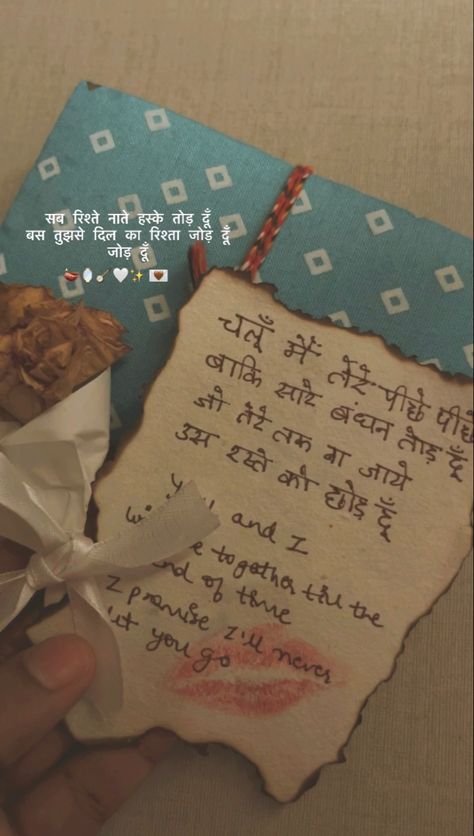 सब रिश्ते नाते हस्के तोड़ दूँ
बस तुझसे दिल का रिश्ता जोड़ दूँ
जोड़ दूँ
चलूँ में तेरे पीछे पीछे
बाकि सारे बंधन तोड़ दूँ
जो तेरे तक ना जाये
उस रस्ते को छोड़ दूँ
and I
together till the
end of time
I promise I'll never
let you go